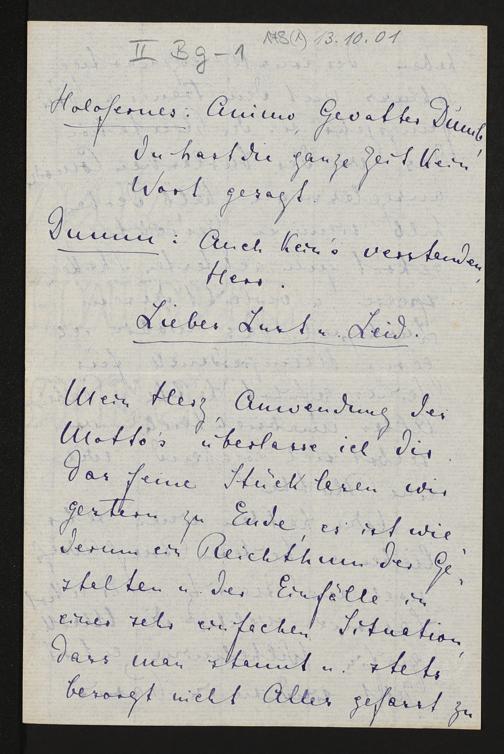 II Bg-1 13.10.01
Holofernes: Animo Gevatter Dumb,
Du hast die ganze Zeit kein
Wort gesagt
Dumm: Auch kein's verstanden,
Herr.
Lieber Lust u. Leid.
Mein Herz, Anwendung des
Motto's überlasse ich Dir.
Das feine Stück lasen wir
gestern zu Ende, es ist wie
derum ein Reichthum der Ge
stalten u. der Einfälle in
einer sehr einfachen Situation,
dass man staunt u. stets
besorgt nicht Alles gefasst zu